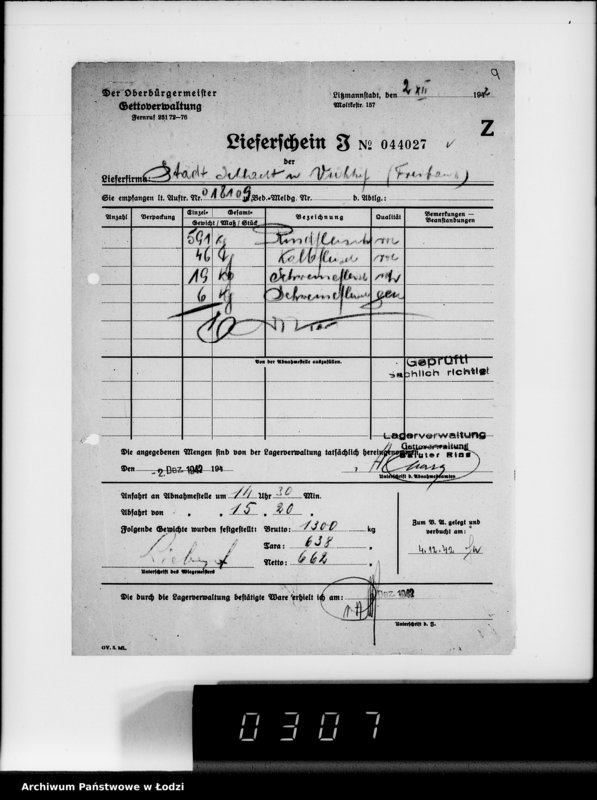 9
Der Oberbürgermeister
Gettoverwaltung
Fernruf 251 72–76
Litzmannstadt, den 2 XII 1942
Moltkestr. 157
Z
Lieferschein J № 044027
der
Lieferfirma: Stadt Schlacht u Viehhof (Freibank)
Sie empfangen lt. Auftr. Nr. 018109 Bed.-Meldg. Nr. b. Abtlg.:
Anzahl Verpackung Einzel- Gesamt- Bezeichnung Qualität Bemerkungen — Beanstandungen
Gewicht / Maß / Stück
591 kg Rindfleisch
46 kg Kalbfleisch
19 kg Schweinefleisch
6 kg Schweinelungen
Von der Abnahmestelle auszufüllen.
Geprüft!
sachlich richtig!
Lagerverwaltung
Gettoverwaltung
Baluter Ring
Die angegebenen Mengen sind von der Lagerverwaltung tatsächlich hereingenommen.
Den -2. Dez. 1942 194
Unterschrift d. Abnahmebeamten
Anfahrt an Abnahmestelle um 14 Uhr 30 Min.
Abfahrt von " " 15 " 20 "
Folgende Gewichte wurden festgestellt: Brutto: 1300 kg
Tara: 638 "
Netto: 662 "
Unterschrift des Wiegemeisters
Zum B. A. gelegt und
verbucht am:
4.12.42
Die durch die Lagerverwaltung bestätigte Ware erhielt ich am: Dez. 1942
Unterschrift d. J.
GV. 5. ML.
0307
Archiwum Państwowe w Łodzi